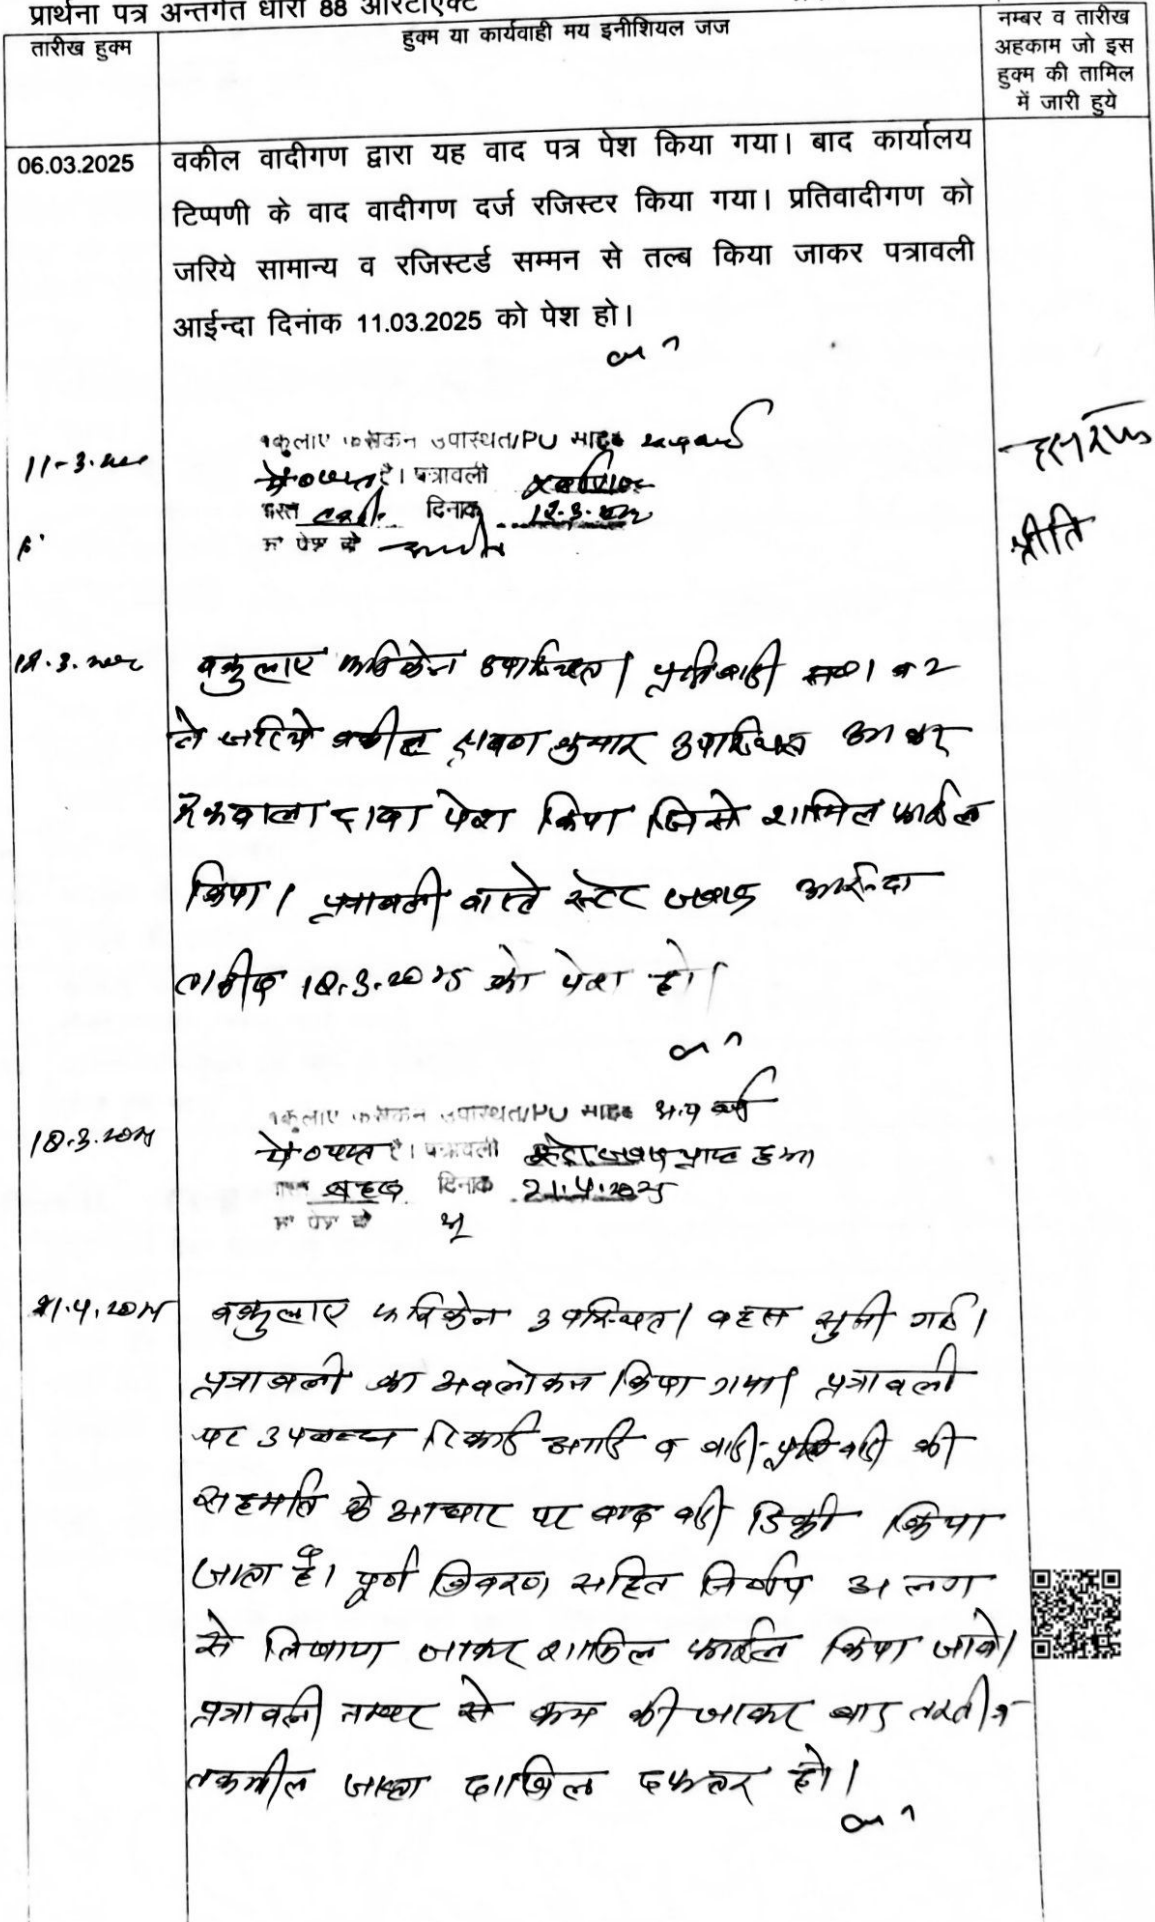 प्रार्थना पत्र अन्तर्गत धारा 88 आरटीएक्ट
तारीख हुक्म
हुक्म या कार्यवाही मय इनीशियल जज
नम्बर व तारीख
अहकाम जो इस
हुक्म की तामिल
में जारी हुये
06.03.2025
वकील वादीगण द्वारा यह वाद पत्र पेश किया गया। बाद कार्यालय
टिप्पणी के वाद वादीगण दर्ज रजिस्टर किया गया। प्रतिवादीगण को
जरिये सामान्य व रजिस्टर्ड सम्मन से तल्ब किया जाकर पत्रावली
आईन्दा दिनांक 11.03.2025 को पेश हो।
उपस्थित/PU
है। पत्रावली
दिनांक
प्रीति
वकुलाए फरिकेन उपस्थित। प्रतिवादी 1 व 2
ने जरिये वकील कुमार उपस्थित आकर
पेश किया जिसे शामिल फाईल
किया। पत्रावली वास्ते स्टेट जवाब आईन्दा
तारीख 18.3.2025 को पेश हो।
18.3.2025
उपस्थित/PU अन्य कार्य
में व्यस्त है। पत्रावली स्टेट जवाब प्राप्त हुआ
बहस दिनांक 21.4.2025
21.4.2025
वकुलाए फरिकेन उपस्थित। बहस सुनी गई।
पत्रावली का अवलोकन किया गया। पत्रावली
पर उपलब्ध रिकार्ड आदि व वादी-प्रतिवादी की
सहमति के आधार पर वाद वादी डिक्री किया
जाता है। पूर्ण विवरण सहित निर्णय अलग
से लिखाया जाकर शामिल फाईल किया जावे।
पत्रावली नम्बर से कम की जाकर बाद
तकमील दाखिल दफ्तर हो।